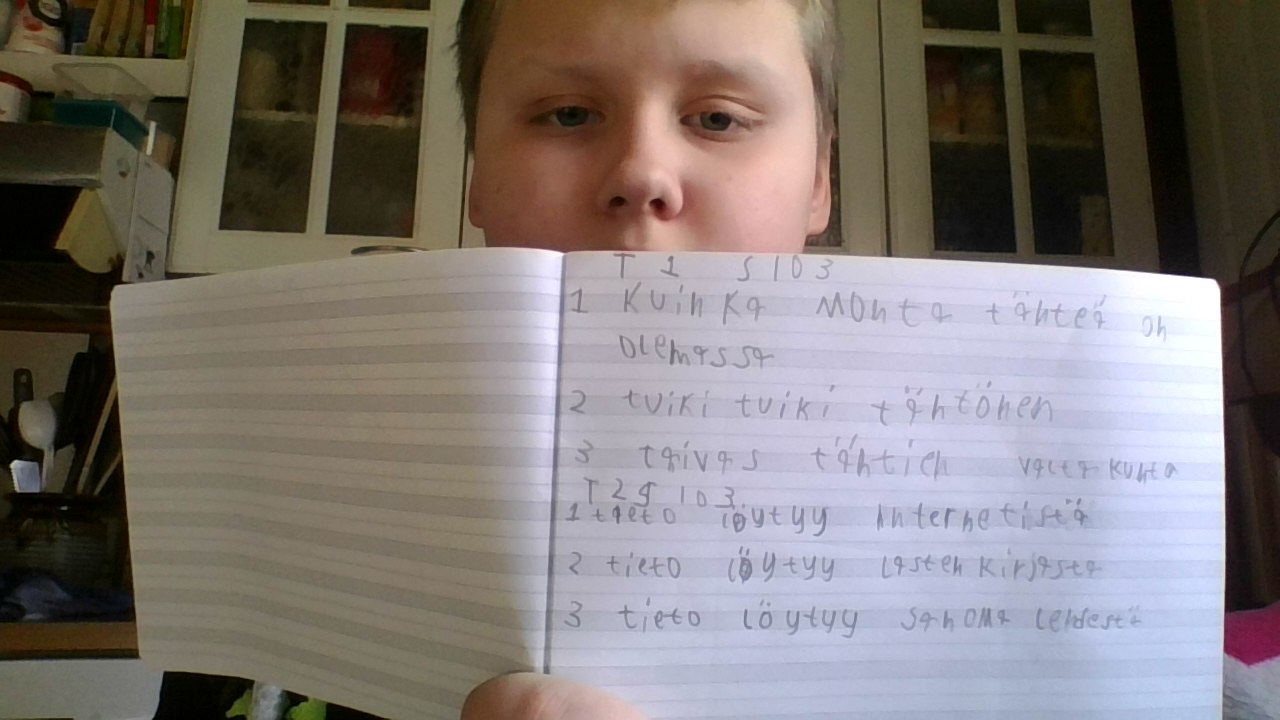 T 1 S 103
1 Kuinka monta tähteä on
olemassa
2 tuiki tuiki tähtönen
3 taivas tähtien valta kunta
T 2 S 103
1 tieto löytyy internetistä
2 tieto löytyy lasten kirjasta
3 tieto löytyy sanoma lehdestä